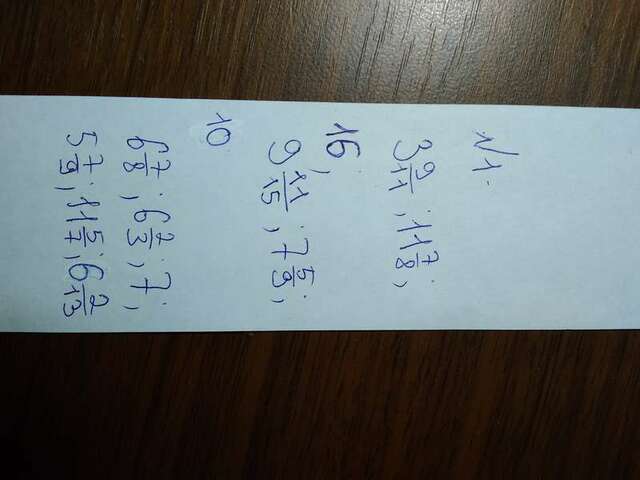 N1.
3 9/11; 11 7/8;
16;
9 11/15; 7 5/9;
10
6 7/8; 6 2/3; 7;
5 7/9; 11 5/7; 6 2/13